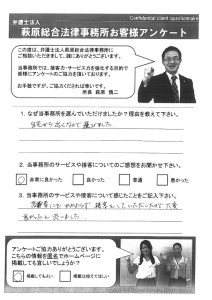 Confidential client questionnaire
弁護士法人
萩原総合法律事務所お客様アンケート
この度は、弁護士法人萩原総合法律事務所に
ご相談いただきまして、誠にありがとうございます。
当事務所では、接客力・サービス力を強化する目的で
皆様にアンケートのご協力を頂いております。
お手数ですが、ご協力くだされば幸いです。
所長 萩原 慎二
1. なぜ当事務所を選んでいただけましたか？理由を教えて下さい。
自宅から近くなので選びました
2. 当事務所のサービスや接客についてのご感想をお聞かせ下さい。
非常に良かった 良かった 普通 悪かった
3. 当事務所のサービスや接客について感じたことをご記入下さい。
良かったと思いました
アンケートご協力ありがとうございます。
こちらの情報を匿名でホームページに
掲載しても宜しいでしょうか？
掲載してもよい 掲載は控えてほしい